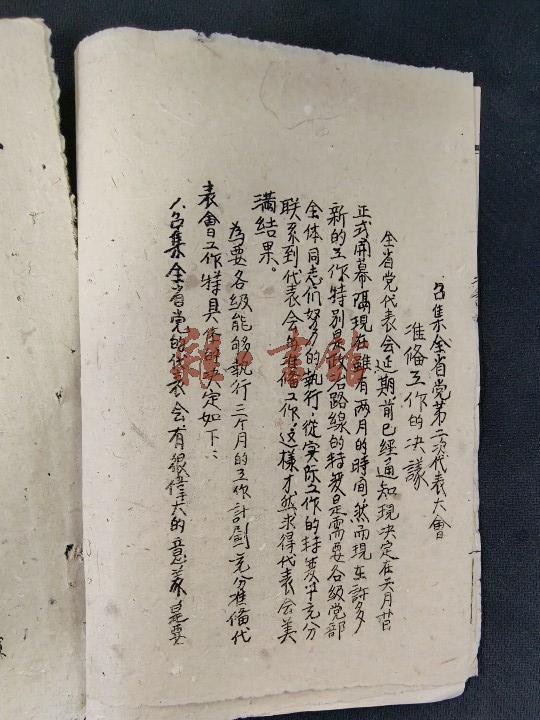 召集全省党第二次代表大會
准備工作的决議
全省党代表会延期前已經通知現决定在六月廿
正式開幕隔現在雖有两月的時间，然而現在許多
新的工作特别是政治路線的轉变是需要各級党部
全体同志们努力的執行，從实际工作的轉变中充分
联系到代表会的准備工作，这樣才然求得代表会美
满結果。
為要各級能够執行三个月的工作計劃充分准備代
表會工作特具体的决定如下：
八召集全省党的代表会有很偉大的意義是要